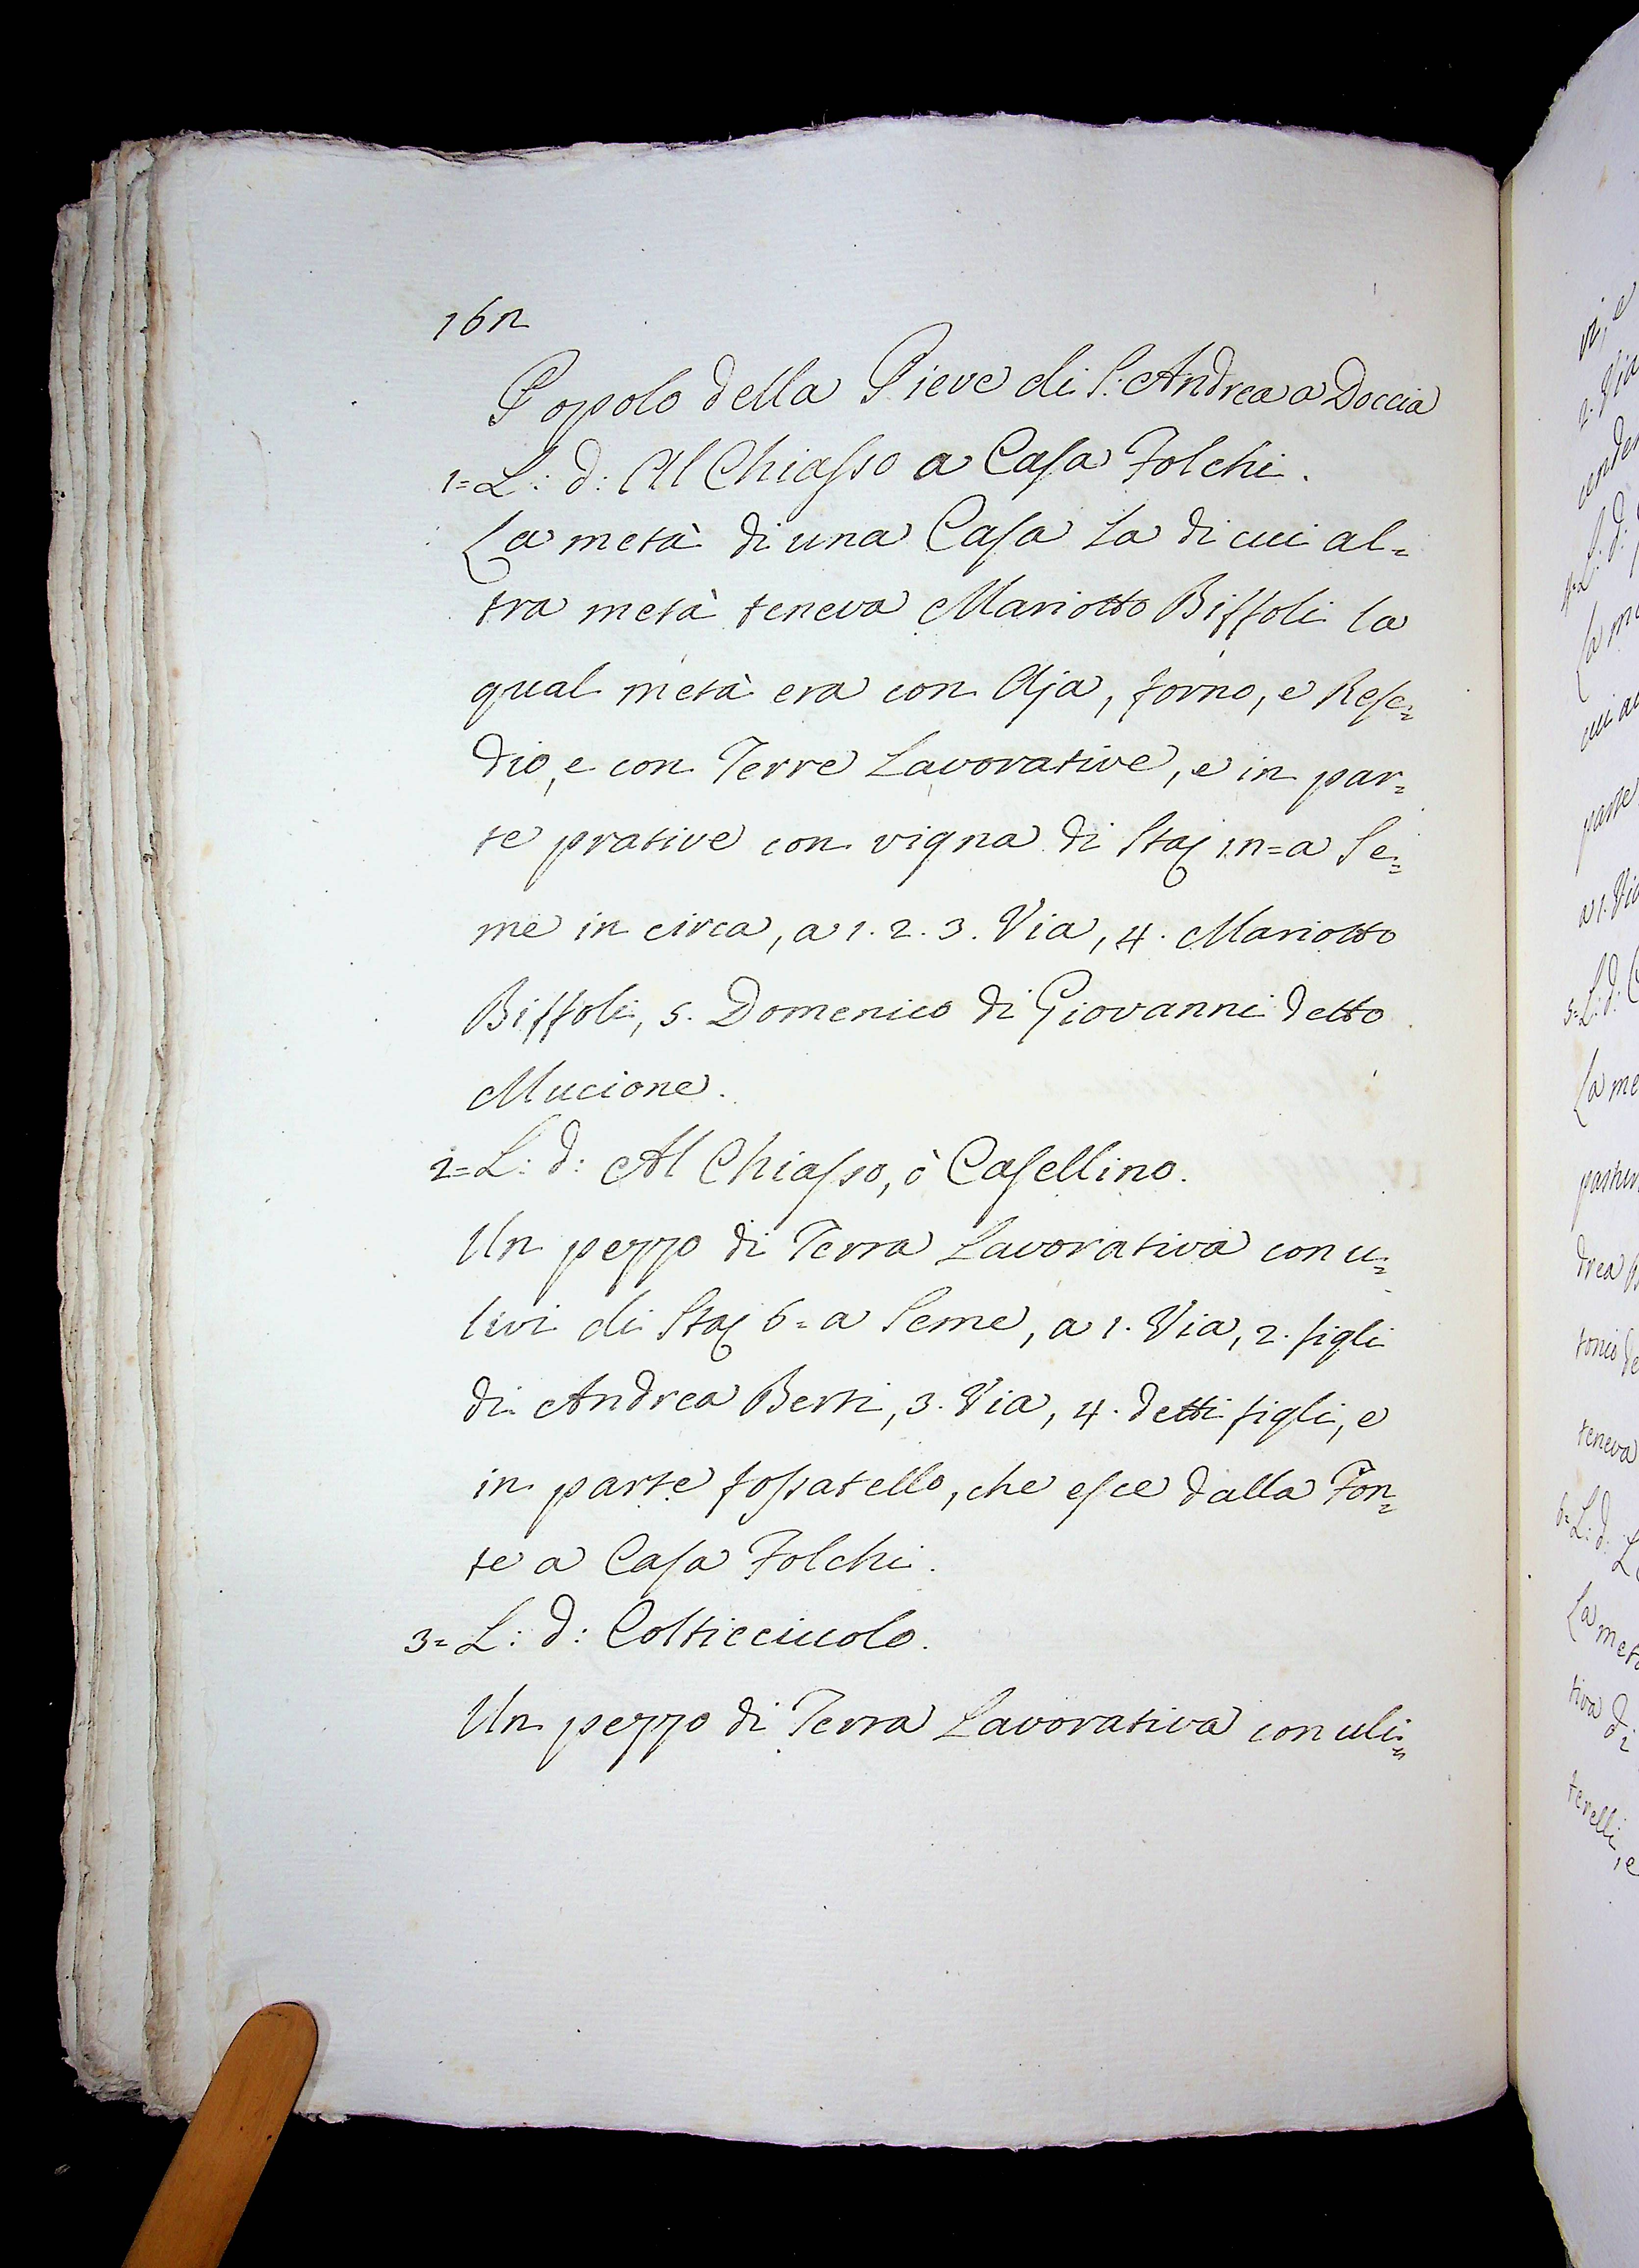 162
Popolo della Pieve di S: Andrea a Doccia
1= L: d: Al Chiasso a Casa Folchi.
La metà di una Casa la di cui al=
tra metà teneva Mariotto Biffoli la
qual metà era con Aja, forno, e Rese=
dio, e con Terre Lavorative, e in par=
te prative con vigna di Staj 12=a Se=
me in circa, a 1. 2. 3. Via, 4. Mariotto
Biffoli, 5. Domenico di Giovanni detto
Mucione.
2= L: d: Al Chiasso, ò Casellino.
Un pezzo di Terra Lavorativa con u=
livi di Staj 6=a Seme, a 1. Via, 2. figli
di Andrea Berti, 3. Via, 4. detti figli, e
in parte fossatello, che esce dalla Fon=
te a Casa Folchi.
3= L: d: Colticciuolo.
Un pezzo di Terra Lavorativa con uli=